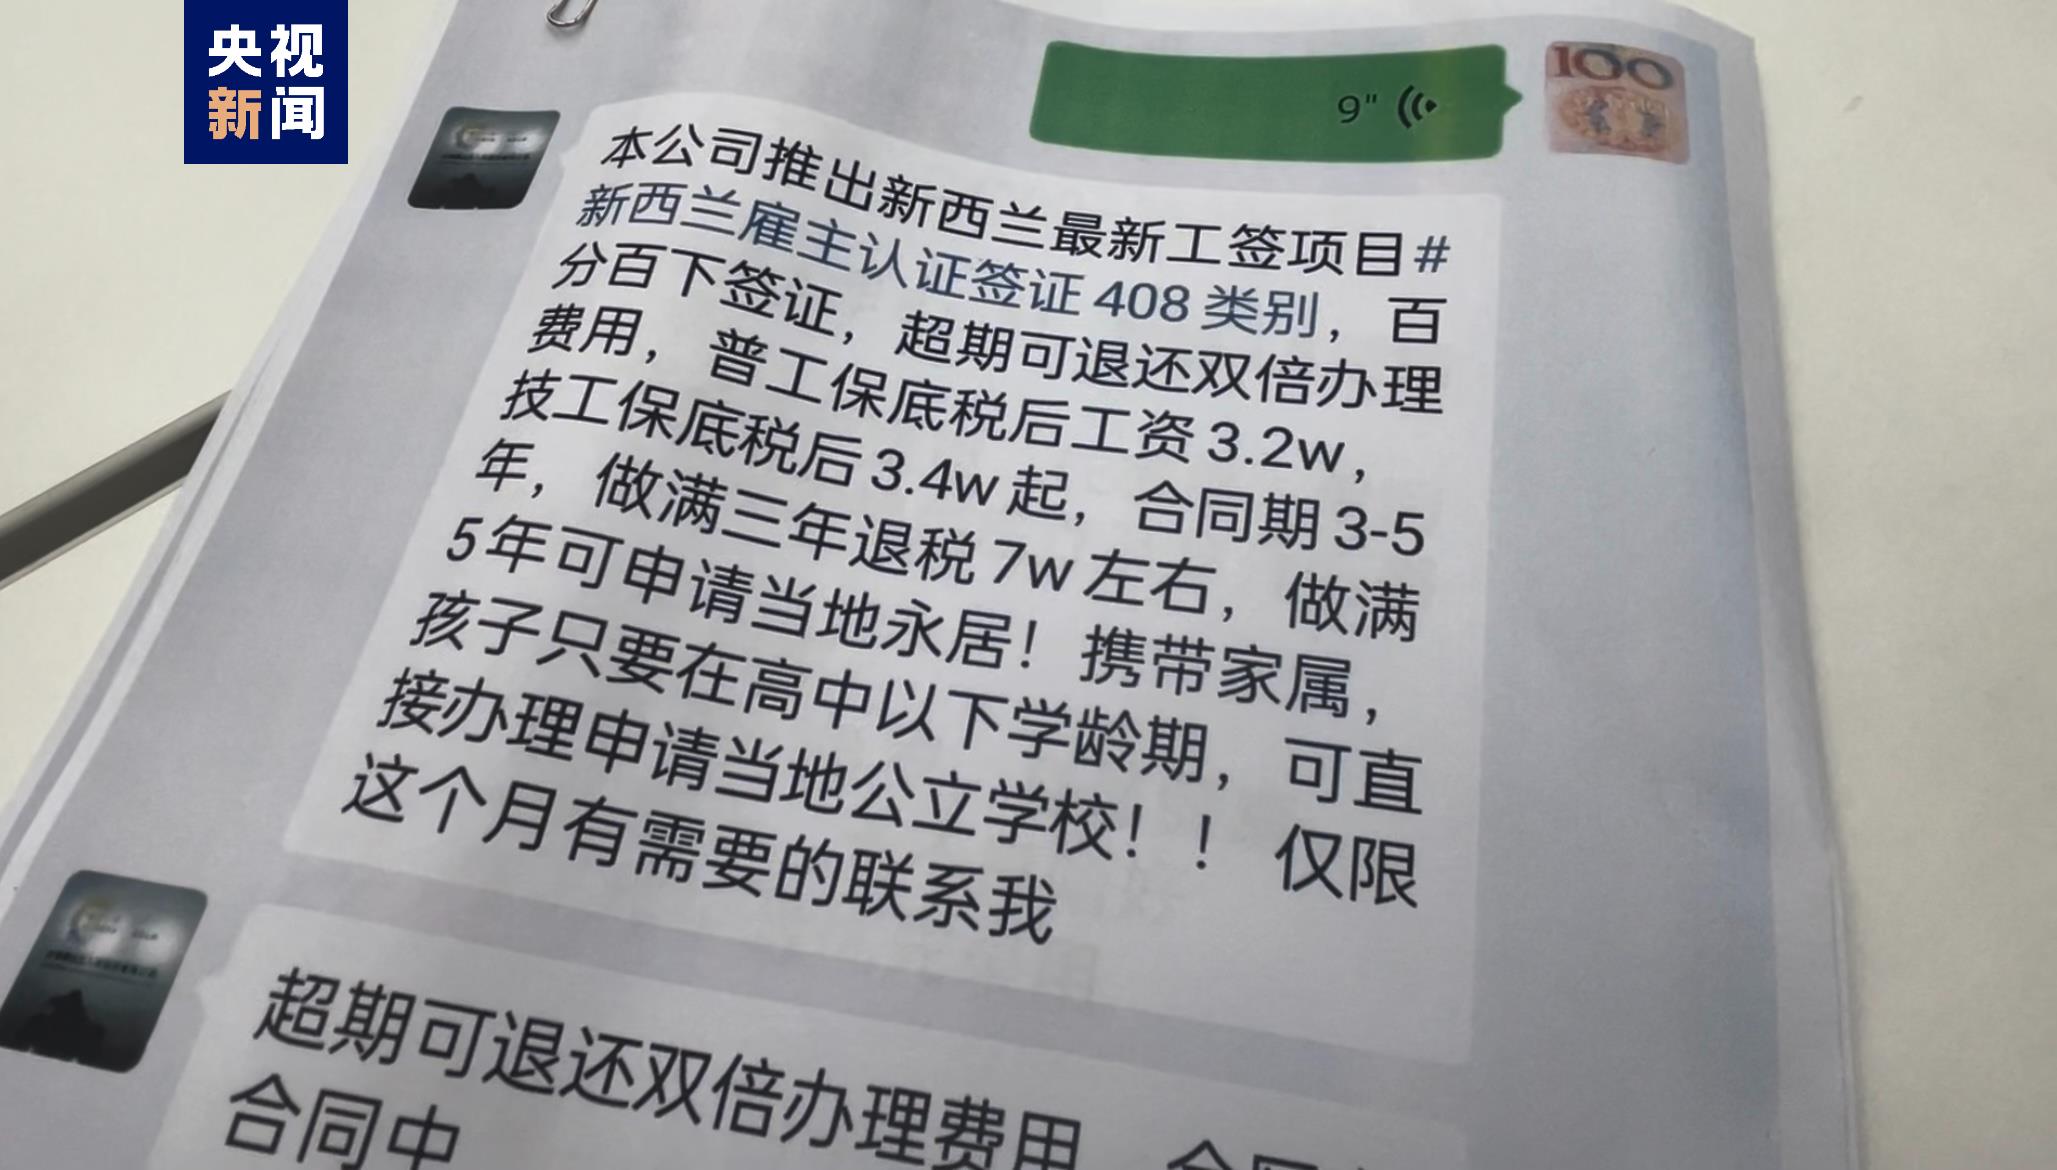 央视
新闻
100
9"
本公司推出新西兰最新工签项目#
新西兰雇主认证签证 408 类别，百
分百下签证，超期可退还双倍办理
费用，普工保底税后工资 3.2w，
技工保底税后 3.4w 起，合同期 3-5
年，做满三年退税 7w 左右，做满
5 年可申请当地永居！携带家属，
孩子只要在高中以下学龄期，可直
接办理申请当地公立学校！！仅限
这个月有需要的联系我
超期可退还双倍办理费用
合同中